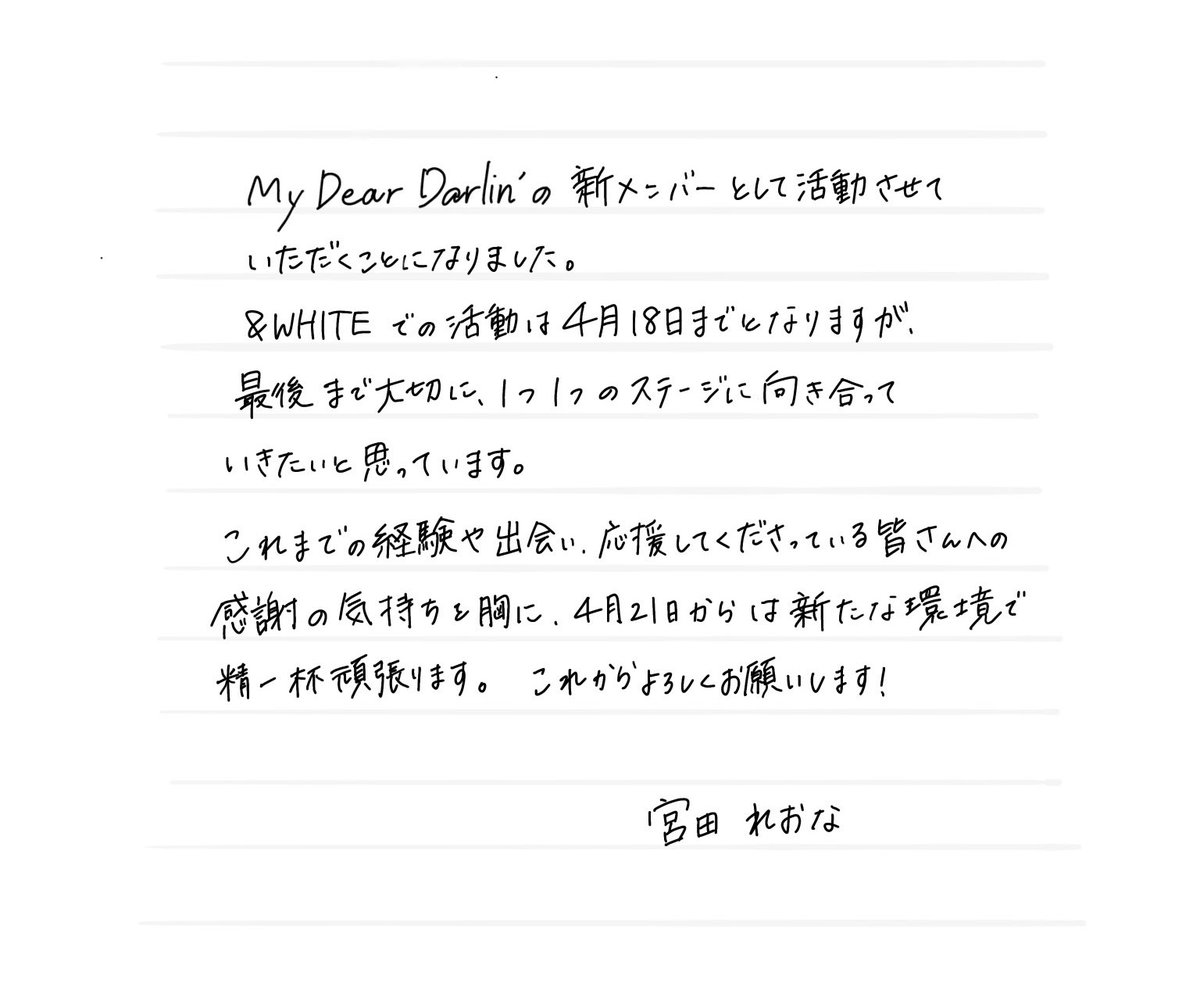 My Dear Darlin'の新メンバーとして活動させて
いただくことになりました。
&WHITE での活動は4月18日までとなりますが、
最後まで大切に、1つ1つのステージに向き合って
いきたいと思っています。
これまでの経験や出会い、応援してくださっている皆さんへの
感謝の気持ちを胸に、4月21日からは新たな環境で
精一杯頑張ります。 これからよろしくお願いします!
宮田 れおな